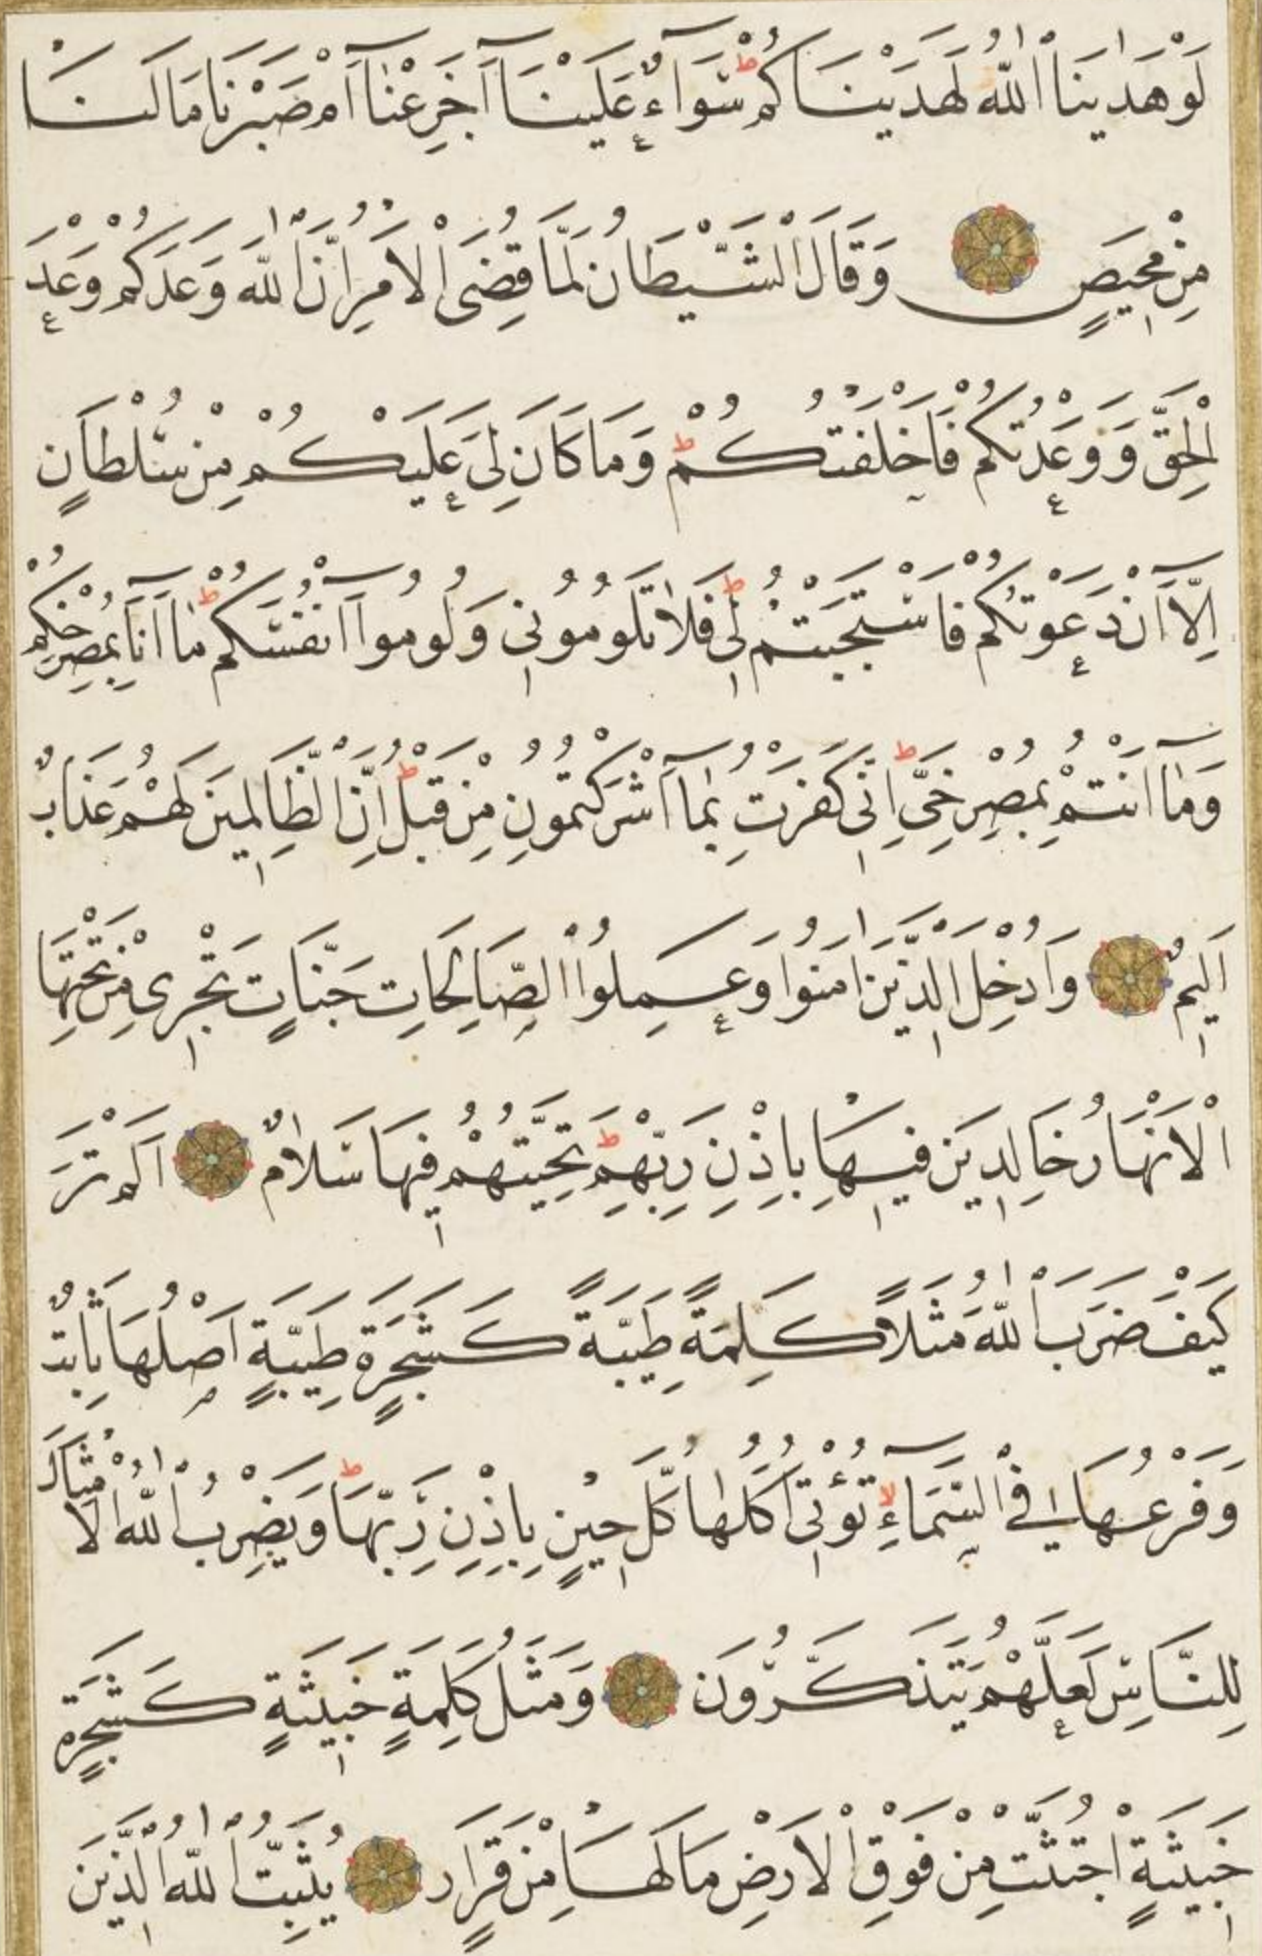 لَوْ هَدٰينَا اللّٰهُ لَهَدَيْنَاكُمْ ط سَوَآءٌ عَلَيْنَآ اَجَزِعْنَآ اَمْ صَبَرْنَا مَا لَنَا
مِنْ مَحِيصٍ وَقَالَ الشَّيْطَانُ لَمَّا قُضِىَ الْاَمْرُ اِنَّ اللّٰهَ وَعَدَكُمْ وَعْدَ
الْحَقِّ وَوَعَدْتُكُمْ فَاَخْلَفْتُكُمْ ط وَمَا كَانَ لِىَ عَلَيْكُمْ مِنْ سُلْطَانٍ
اِلَّآ اَنْ دَعَوْتُكُمْ فَاسْتَجَبْتُمْ لِى ط فَلَا تَلُومُونِى وَلُومُوٓا اَنْفُسَكُمْ ط مَآ اَنَا بِمُصْرِخِكُمْ
وَمَآ اَنْتُمْ بِمُصْرِخِىَّ ط اِنِّى كَفَرْتُ بِمَآ اَشْرَكْتُمُونِ مِنْ قَبْلُ ط اِنَّ الظَّالِمِينَ لَهُمْ عَذَابٌ
اَلِيمٌ وَاُدْخِلَ الَّذِينَ اٰمَنُوا وَعَمِلُوا الصَّالِحَاتِ جَنَّاتٍ تَجْرِى مِنْ تَحْتِهَا
الْاَنْهَارُ خَالِدِينَ فِيهَا بِاِذْنِ رَبِّهِمْ ط تَحِيَّتُهُمْ فِيهَا سَلَامٌ اَلَمْ تَرَ
كَيْفَ ضَرَبَ اللّٰهُ مَثَلًا كَلِمَةً طَيِّبَةً كَشَجَرَةٍ طَيِّبَةٍ اَصْلُهَا ثَابِتٌ
وَفَرْعُهَا فِى السَّمَآءِ لا تُؤْتِى اُكُلَهَا كُلَّ حِينٍ بِاِذْنِ رَبِّهَا ط وَيَضْرِبُ اللّٰهُ الْاَمْثَالَ
لِلنَّاسِ لَعَلَّهُمْ يَتَذَكَّرُونَ وَمَثَلُ كَلِمَةٍ خَبِيثَةٍ كَشَجَرَةٍ
خَبِيثَةٍ اجْتُثَّتْ مِنْ فَوْقِ الْاَرْضِ مَا لَهَا مِنْ قَرَارٍ يُثَبِّتُ اللّٰهُ الَّذِينَ